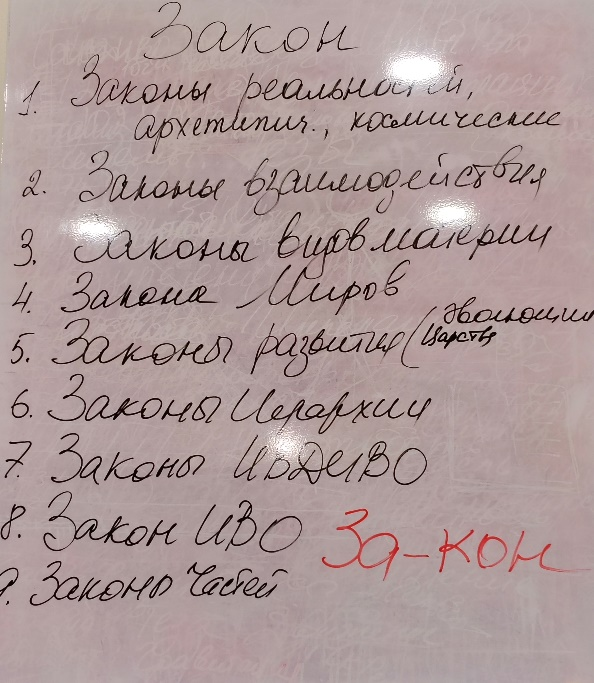 Закон
1. Законы реальностей,
архетипич., космические
2. Законы взаимодействия
3. Законы видов материи
4. Закона Миров
5. Законы развития (эволюции
Царств
6. Законы Иерархии
7. Законы ИВДИВО
8. Закон ИВО
За-кон
9. Законы Частей